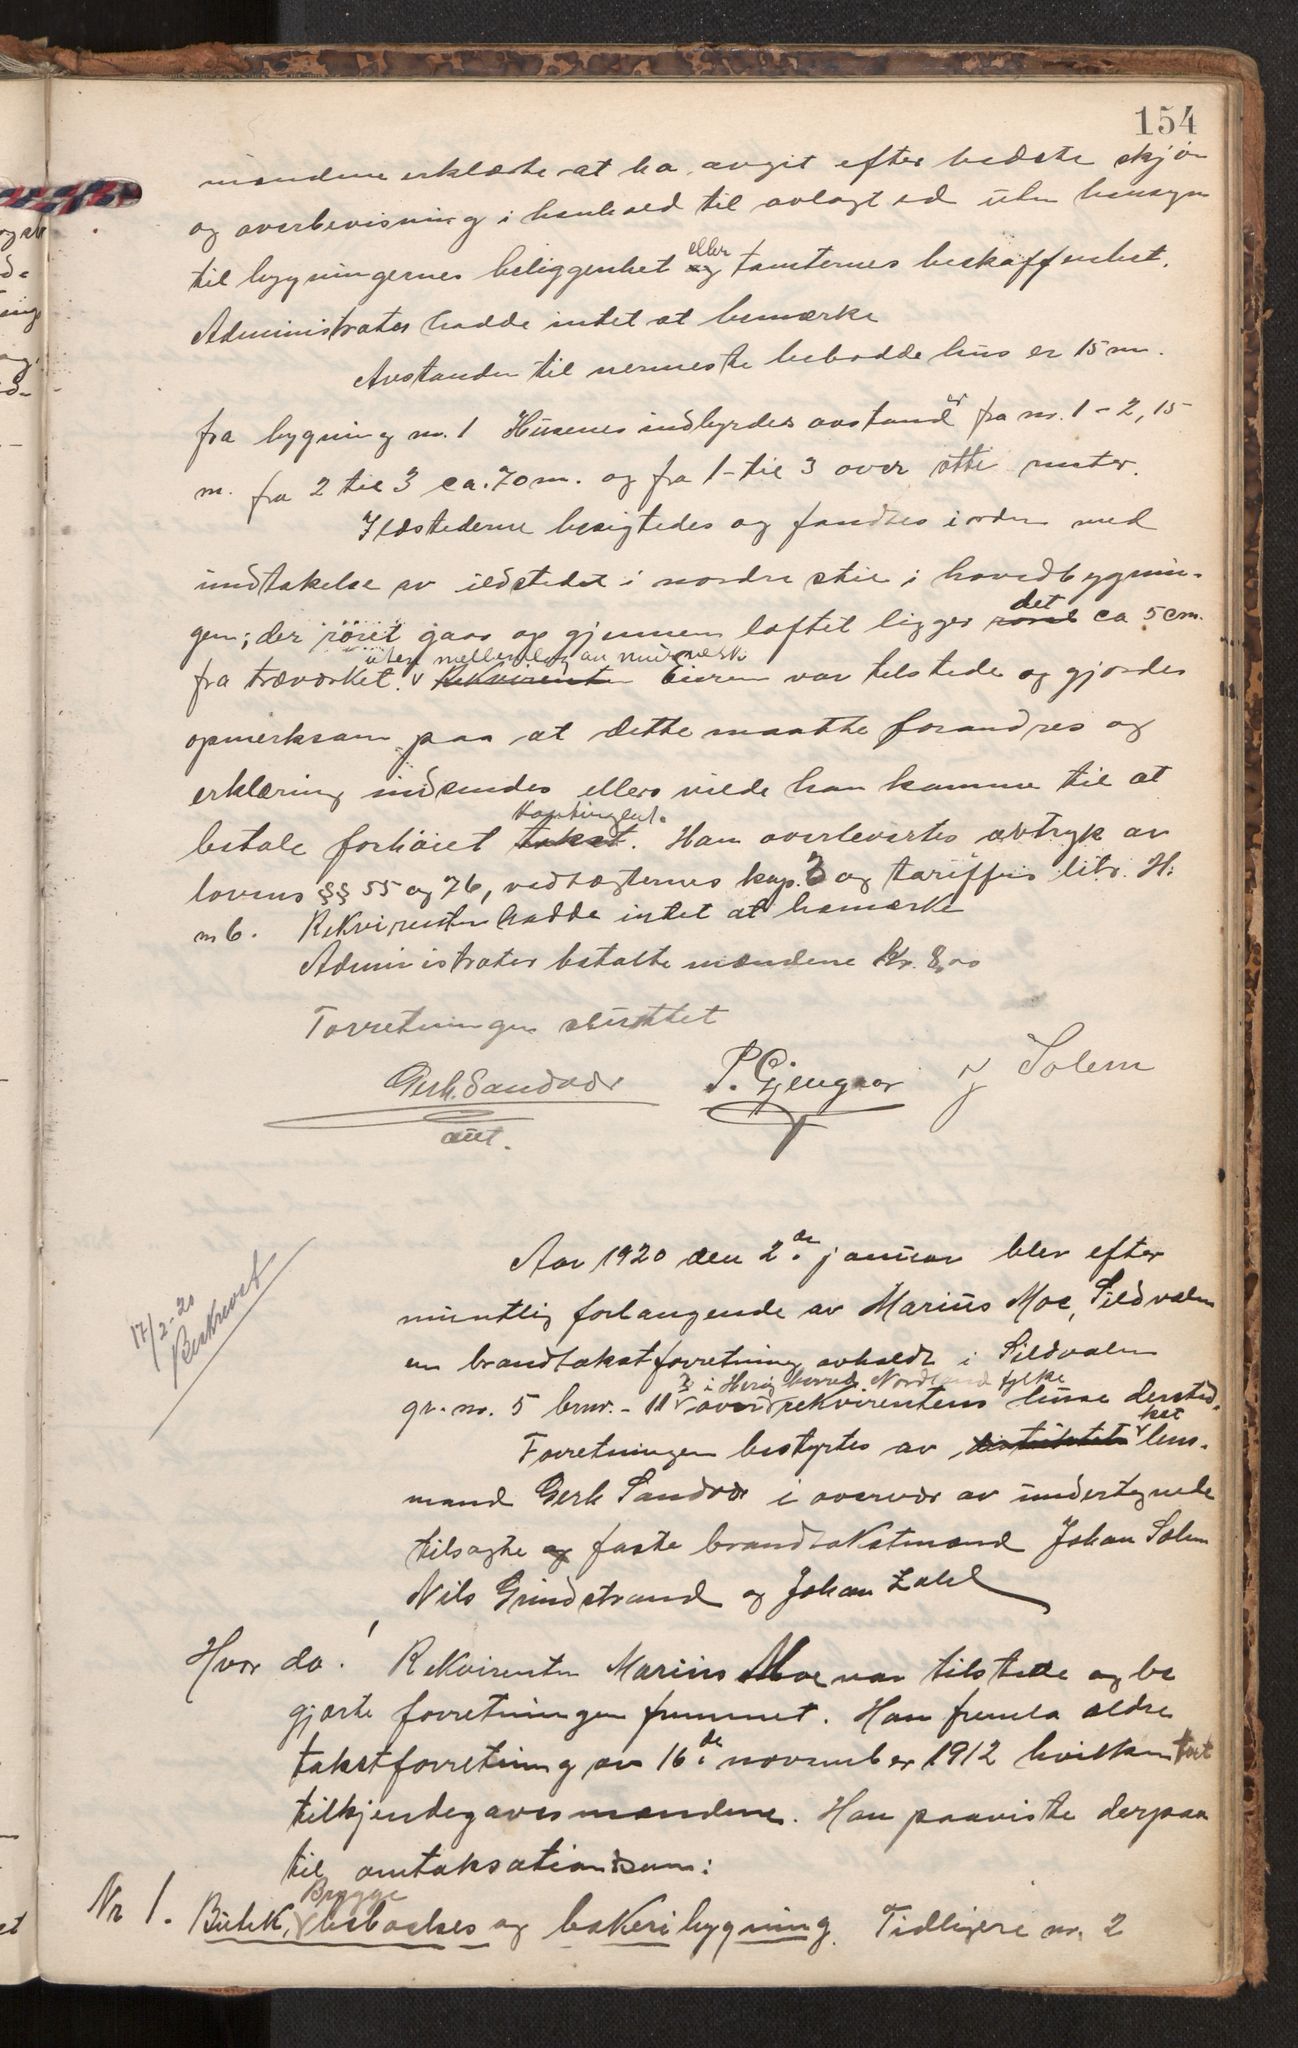 154
mændene erklærte at ha avgit efter bedste skjøn
og overbevisning i henhold til avlagt ed uten hensyn
til bygningernes beliggenhet og eller tomternes beskaffenhet.
Administrator hadde intet at bemærke
Avstanden til nermeste bebodde hus er 15 m.
fra bygning nr. 1 Husenes indbyrdes avstand er fra nr. 1 - 2, 15
m. fra 2 til 3 ca. 70 m. og fra 1 til 3 over otti meter.
Ildstederne besigtedes og fandtes i orden med
undtakelse av ildstedet i nordre stue i hovedbygnin-
gen; der röret gaar op gjennem loftet ligger röret det ca 5 cm.
uten mellemlag av murverk
fra træværket. Rekvirenten Eieren var tilstede og gjordes
opmerksom paa at dette maatte forandres og
erklæring indsendes ellers vilde han komme til at
betale forhöiet takst kontingent. Han overlevertes avtryk av
lovens §§ 55 og 76, vedtægternes kap. 7 og tariffens litr. H.
nr 6. Rekvirenten hadde intet at bemærke
Administrator betalte mændene Kr. 8,00
Forretningen sluttet
Gerh. Sandvær P. Gjengaar J Solem
aut.
Aar 1920 den 2de januar blev efter
17/2-20
Beskrevet
muntlig forlangende av Marius Moe, Sildvalen
en brandtakstforretning avholdt i Sildvalen
3 i Herøy herred Nordland fylke
gr. nr. 5 brnr. - 11 over rekvirentens huse dersted.
Forretningen bestyrtes av distriktets lens-
mand Gerh Sandvær i overvær av undertegnede
tilsagte og faste brandtakstmænd Johan Solem
Nils Grindstrand og Johan Zahl
Hvor da! Rekvirenten Marius Moe var tilstede og be
gjærte forretningen fremmet. Han fremla ældre
takstforretning av 16de november 1912 hvilken
tilkjendegaves mændene. Han paaviste derpaa
til omtaksation som:
Brygge
Nr 1. Butik, beboelses og bakeribygning. Tidligere nr. 2